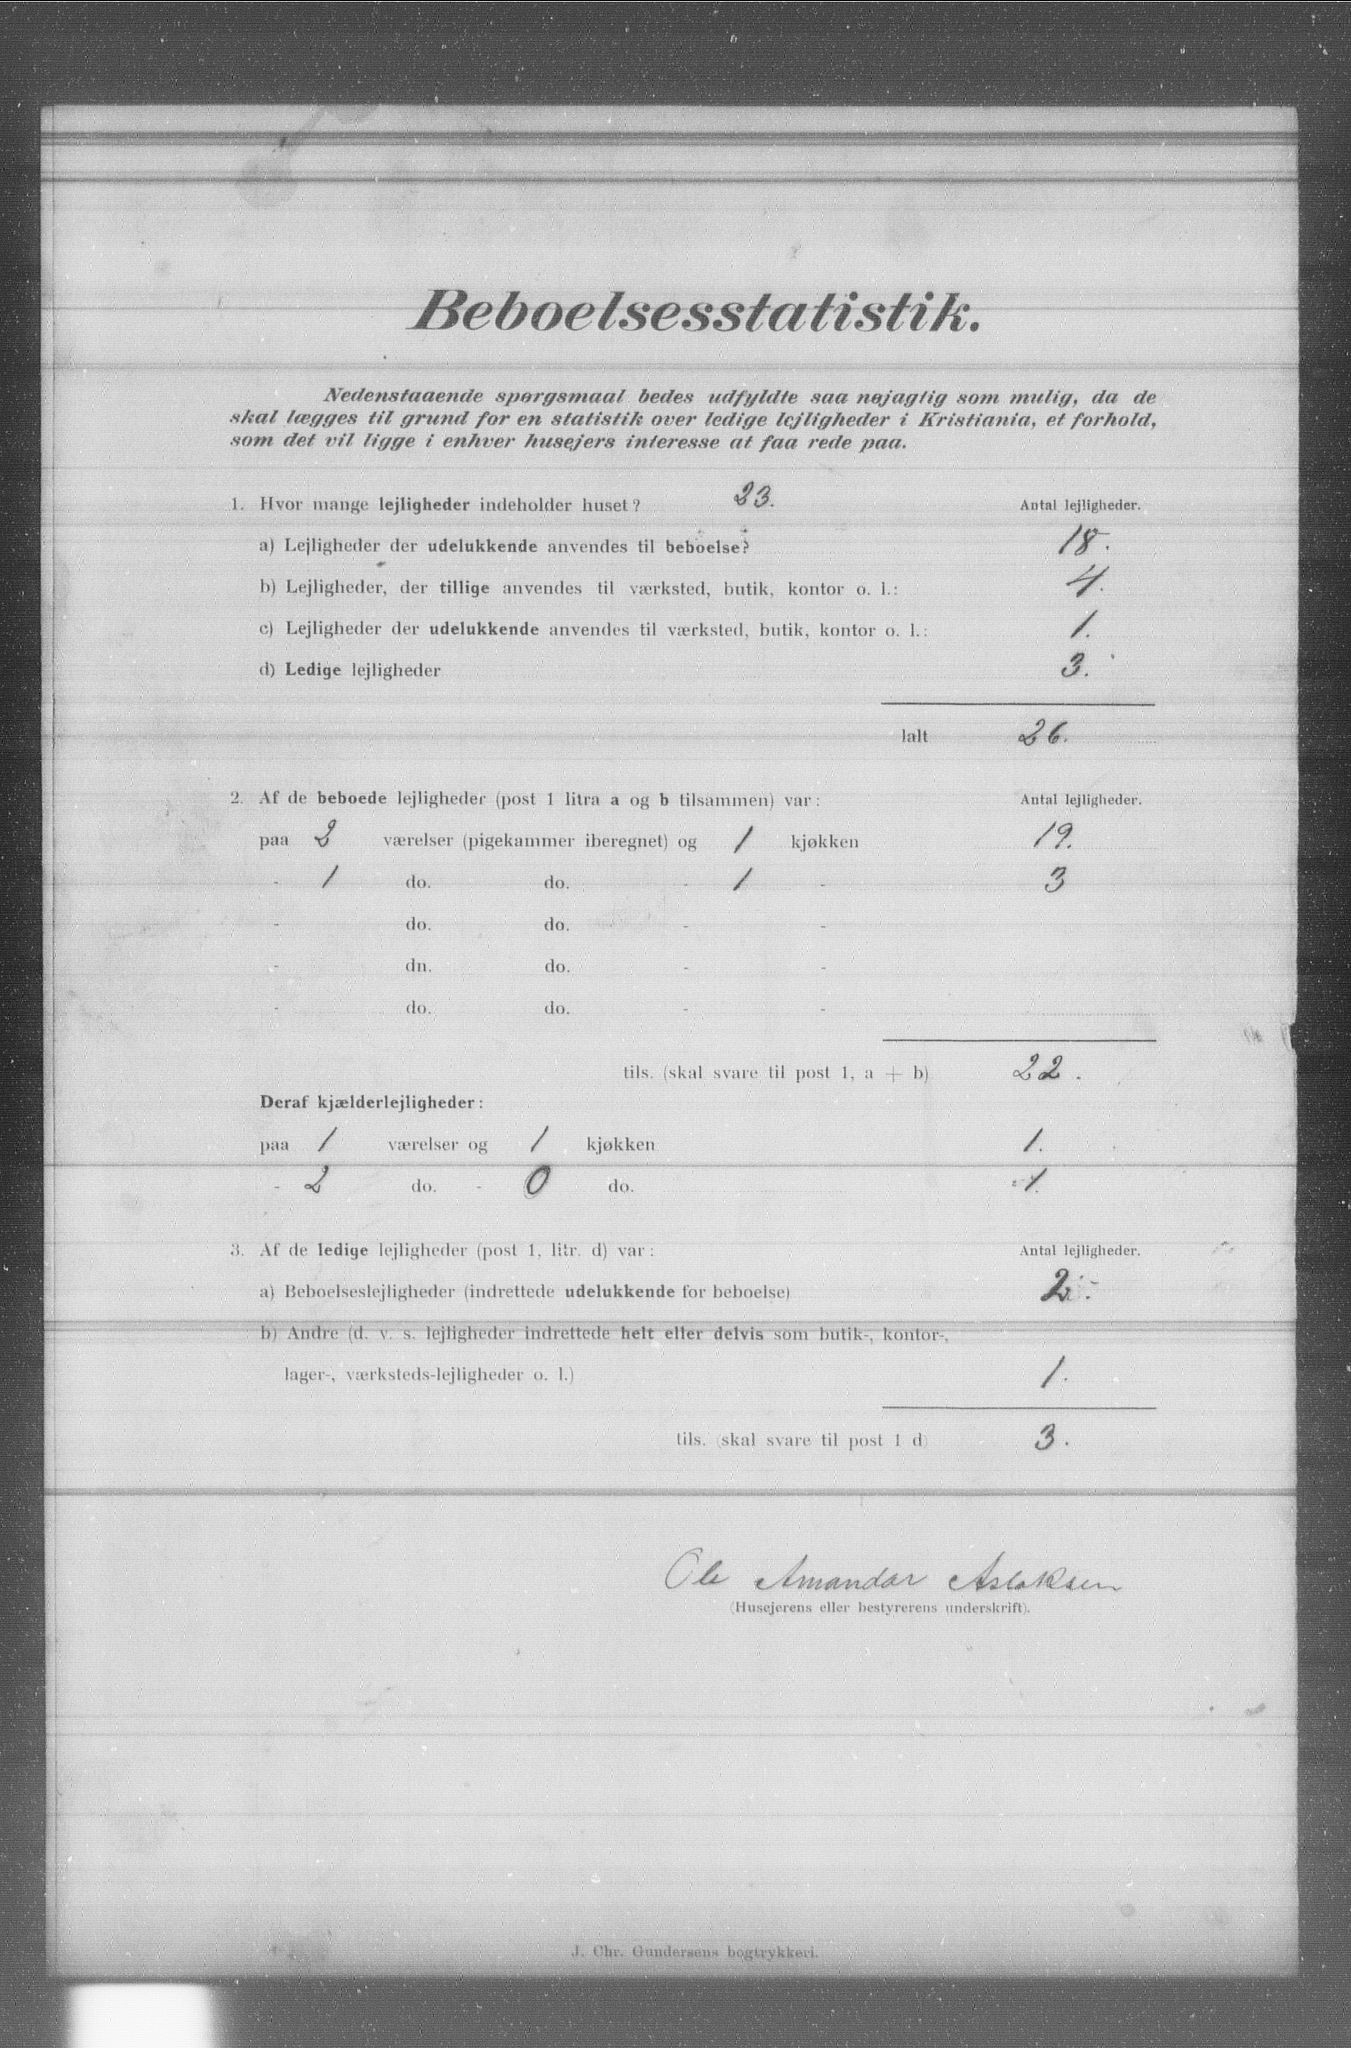 Beboelsesstatistik.
Nedenstaaende spørgsmaal bedes udfyldte saa nøjagtig som mulig, da de
skal lægges til grund for en statistik over ledige lejligheder i Kristiania, et forhold,
som det vil ligge i enhver husejers interesse at faa rede paa.
1. Hvor mange lejligheder indeholder huset? 23. Antal lejligheder.
a) Lejligheder der udelukkende anvendes til beboelse? 18.
b) Lejligheder, der tillige anvendes til værksted, butik, kontor o. l.: 4.
c) Lejligheder der udelukkende anvendes til værksted, butik, kontor o. l.: 1.
d) Ledige lejligheder 3.
Ialt 26.
2. Af de beboede lejligheder (post 1 litra a og b tilsammen) var: Antal lejligheder.
paa 2 værelser (pigekammer iberegnet) og 1 kjøkken 19.
- 1 do. do. - 1 - 3
- do. do. - -
- dn. do. - -
- do. do. - -
tils. (skal svare til post 1, a + b) 22.
Deraf kjælderlejligheder:
paa 1 værelser og 1 kjøkken 1.
- 2 do. - 0 do. 1.
3. Af de ledige lejligheder (post 1, litr. d) var: Antal lejligheder.
a) Beboelseslejligheder (indrettede udelukkende for beboelse) 2.
b) Andre (d. v. s. lejligheder indrettede helt eller delvis som butik-, kontor-,
lager-, værksteds-lejligheder o. l.) 1.
tils. (skal svare til post 1 d) 3.
Ole Amandar Aslaksen
(Husejerens eller bestyrerens underskrift).
J. Chr. Gundersens bogtrykkeri.